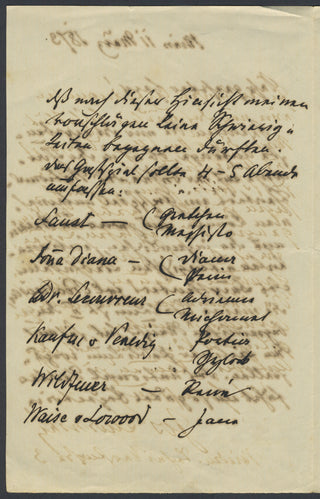 daß nach dieser Hinsicht meinen
Vorschlägen keine Schwierig„
keiten begegnen dürften.
Das Gastspiel sollte 4-5 Abende
umfassen:
Faust — ( Gretchen
Mephisto
Donna Diana — ( Diana
Perin
Adr. Lecouvreur ( Adrienne
Michonnet
Kaufm v Venedig. Portia
Shylock
Wildfeuer — René
Waise v Lowood — Jane